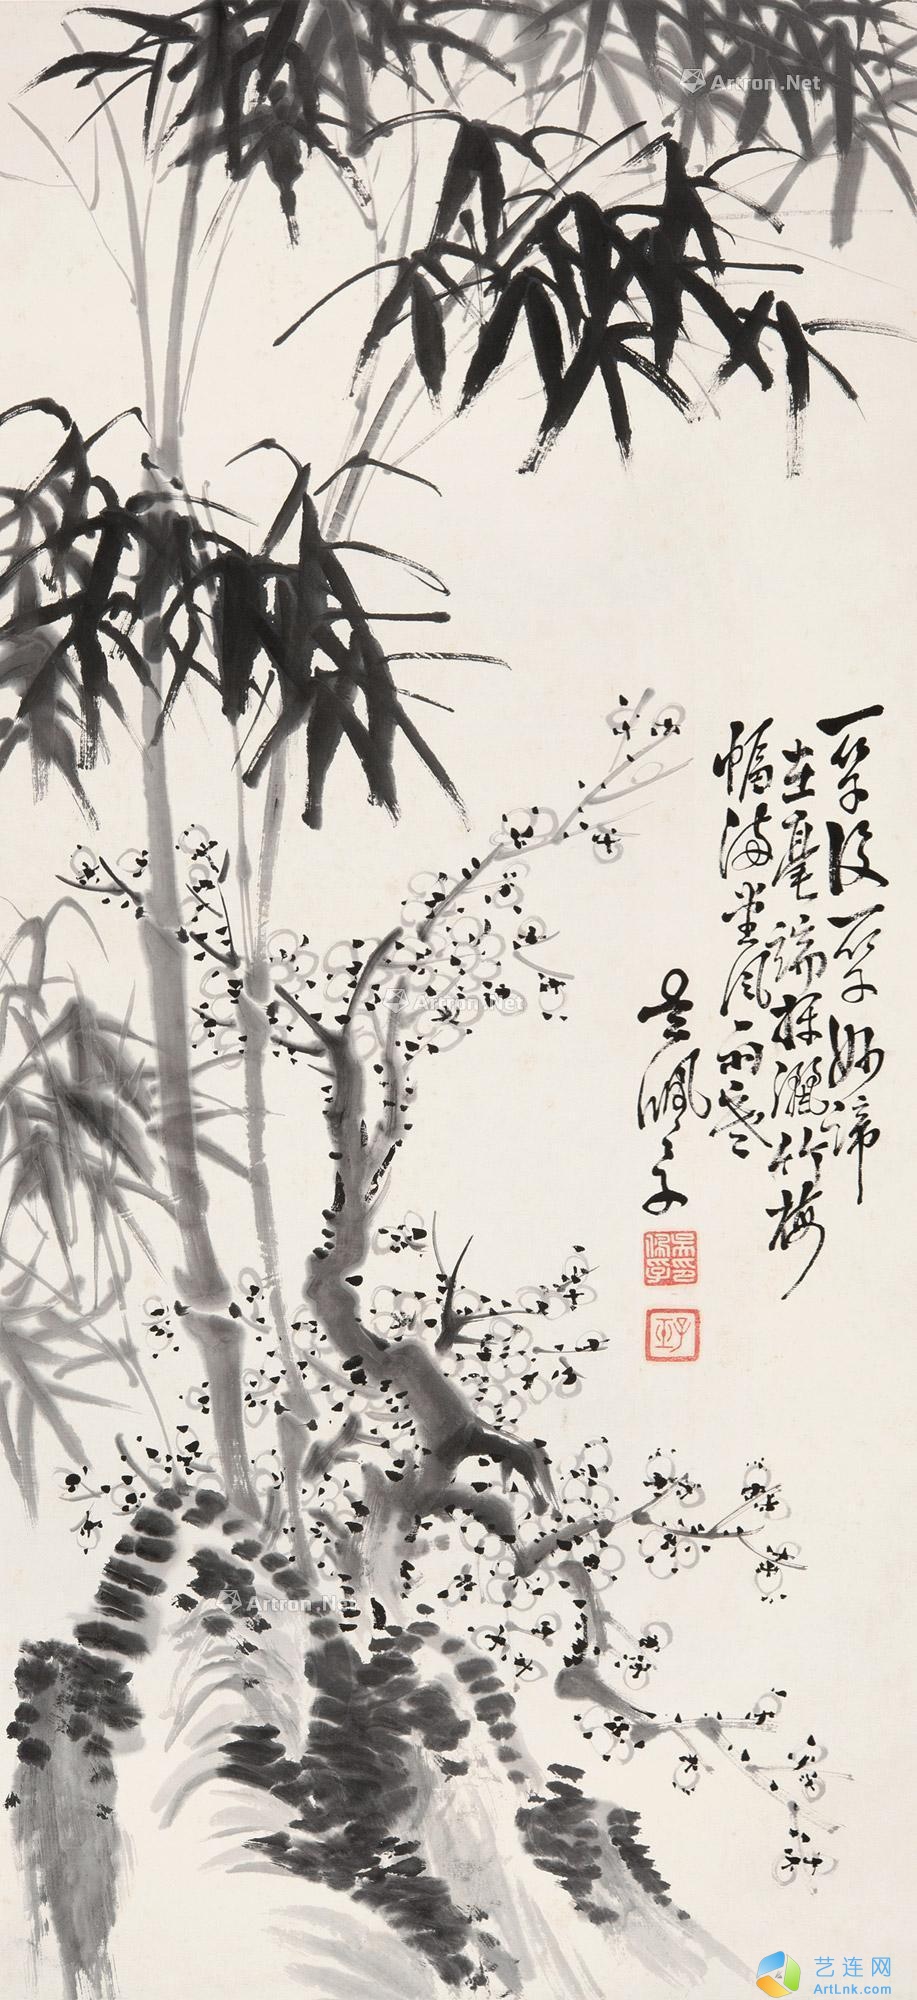 Artron.Net
一竿復一竿妙諦
在毫端揮灑竹梅
幅滿堂風雨寒
吳佩孚
吳印佩孚
子玉
Artron.Net
Artron.Net
艺连网
ArtLnk.com